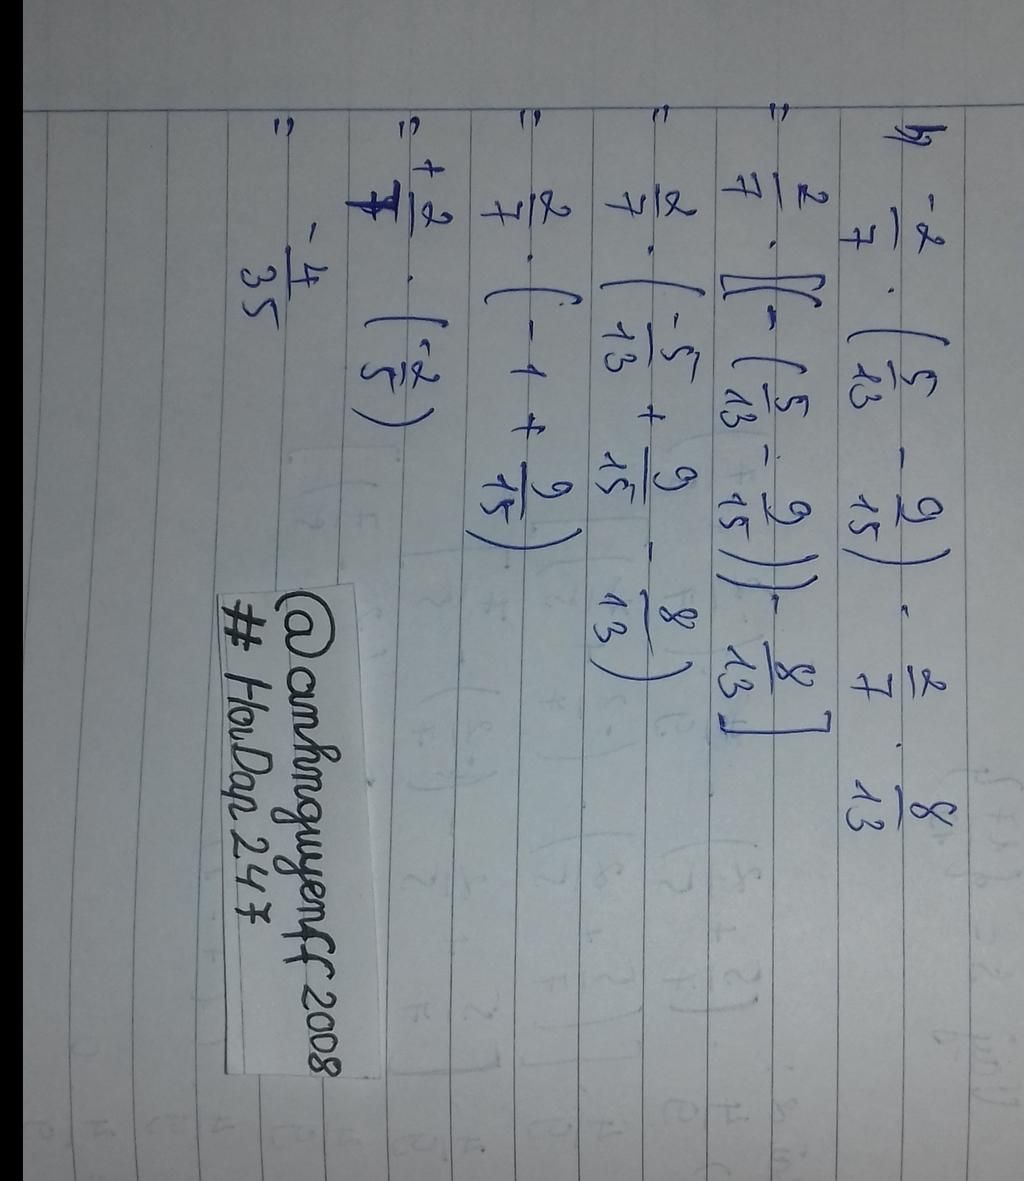 h) -2/7 . (5/13 - 9/15) - 2/7 . 8/13
= 2/7 . [(- (5/13 - 9/15)) - 8/13]
= 2/7 . (-5/13 + 9/15 - 8/13)
= 2/7 . (-1 + 9/15)
= + 2/7 . (-2/5)
= -4/35
@anhnguyenff2008
# HoiDap247